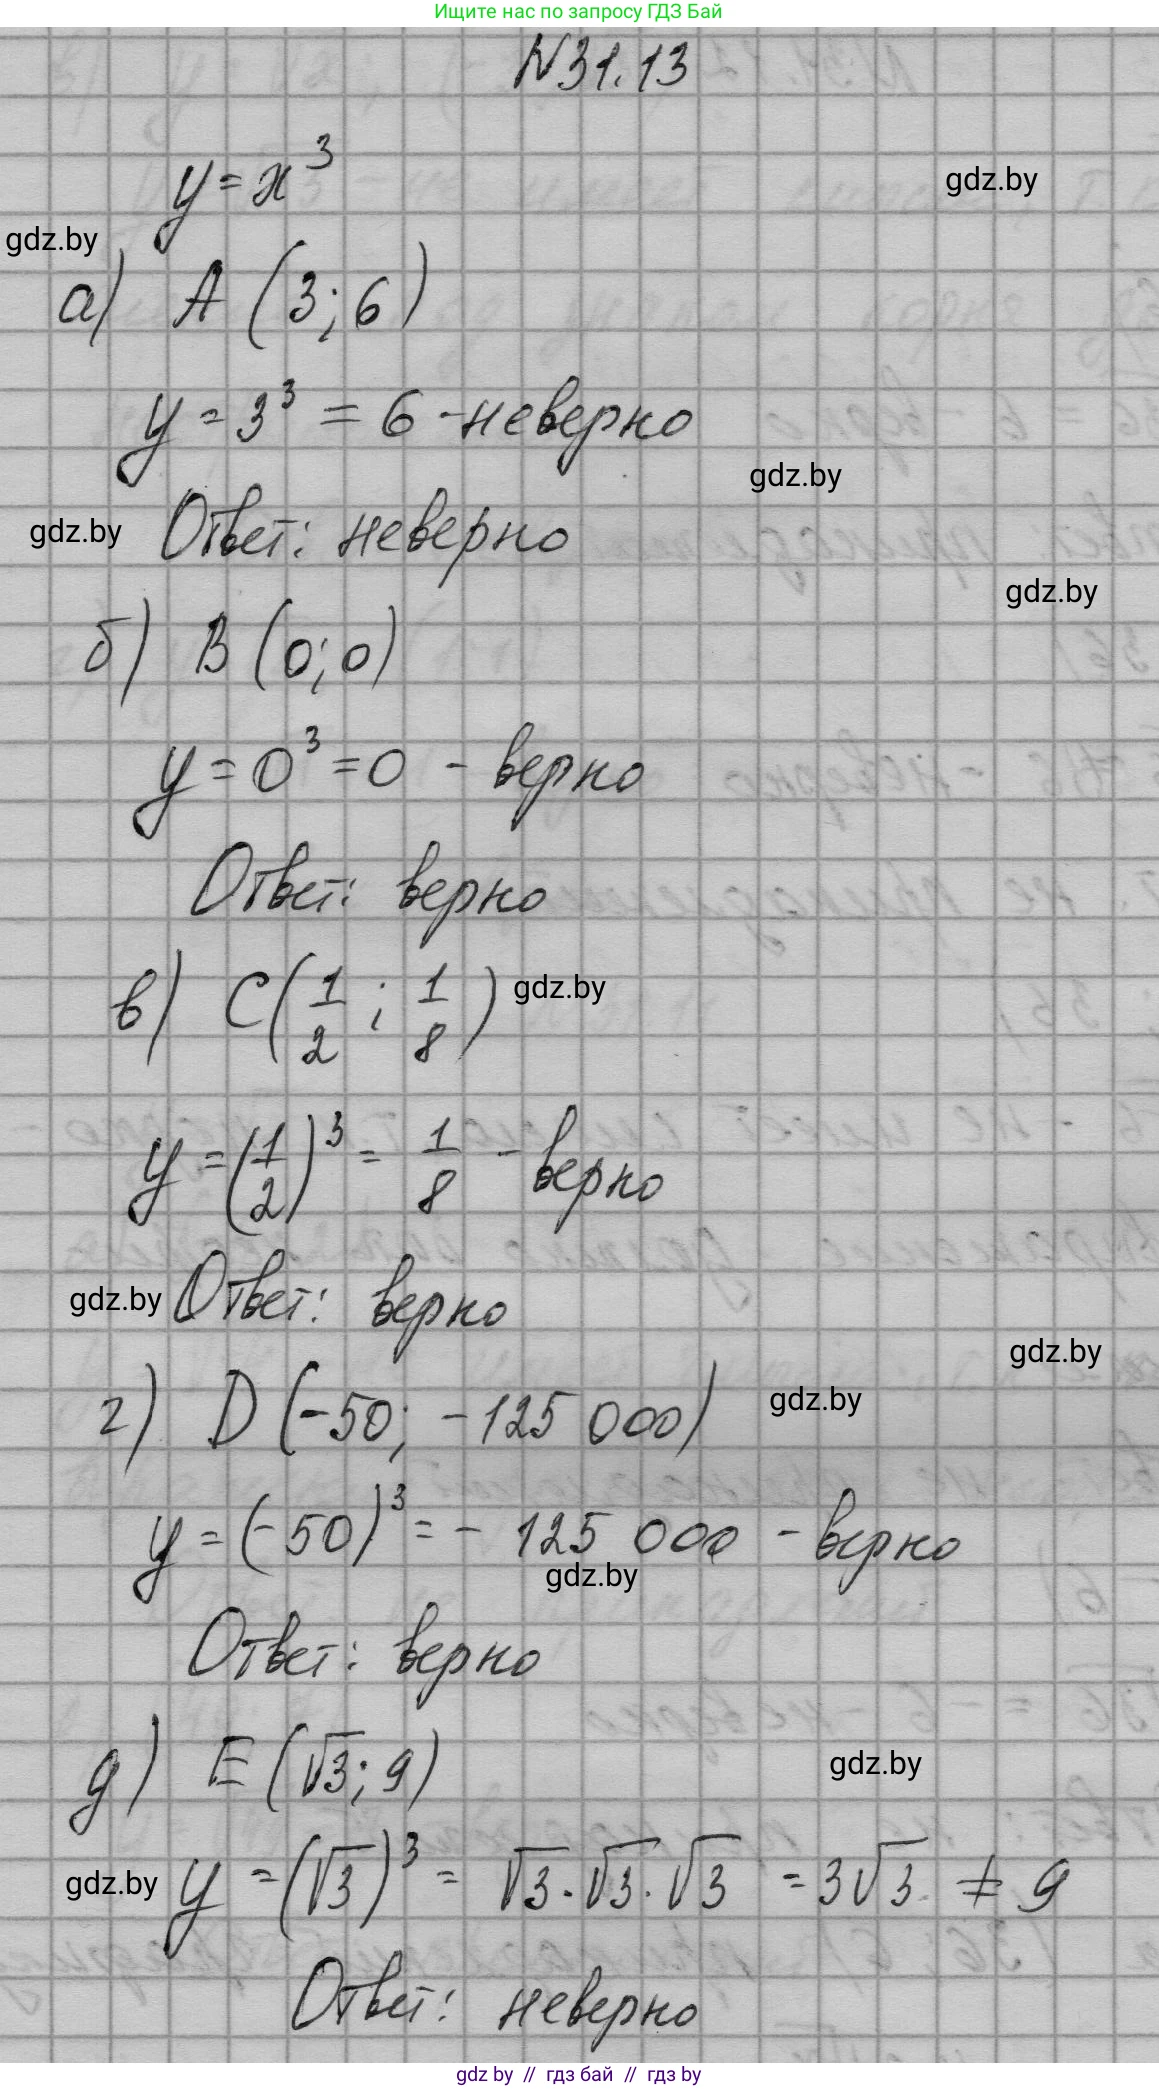 Ищите нас по запросу ГДЗ Бай
N31.13
y = x³
gdz.by
gdz.by
а) A (3; 6)
y = 3³ = 6 - неверно
gdz.by
gdz.by Ответ: неверно
gdz.by
б) B (0; 0)
y = 0³ = 0 - верно
Ответ: верно
в) C (1/2 ; 1/8) gdz.by
y = (1/2)³ = 1/8 - верно
gdz.by Ответ: верно
gdz.by
г) D (-50; -125 000) gdz.by
y = (-50)³ = - 125 000 - верно
gdz.by
Ответ: верно
д) E (√3; 9) gdz.by
gdz.by y = (√3)³ = √3 · √3 · √3 = 3√3 ≠ 9
Ответ: неверно
gdz by // гдз бай // гдз by